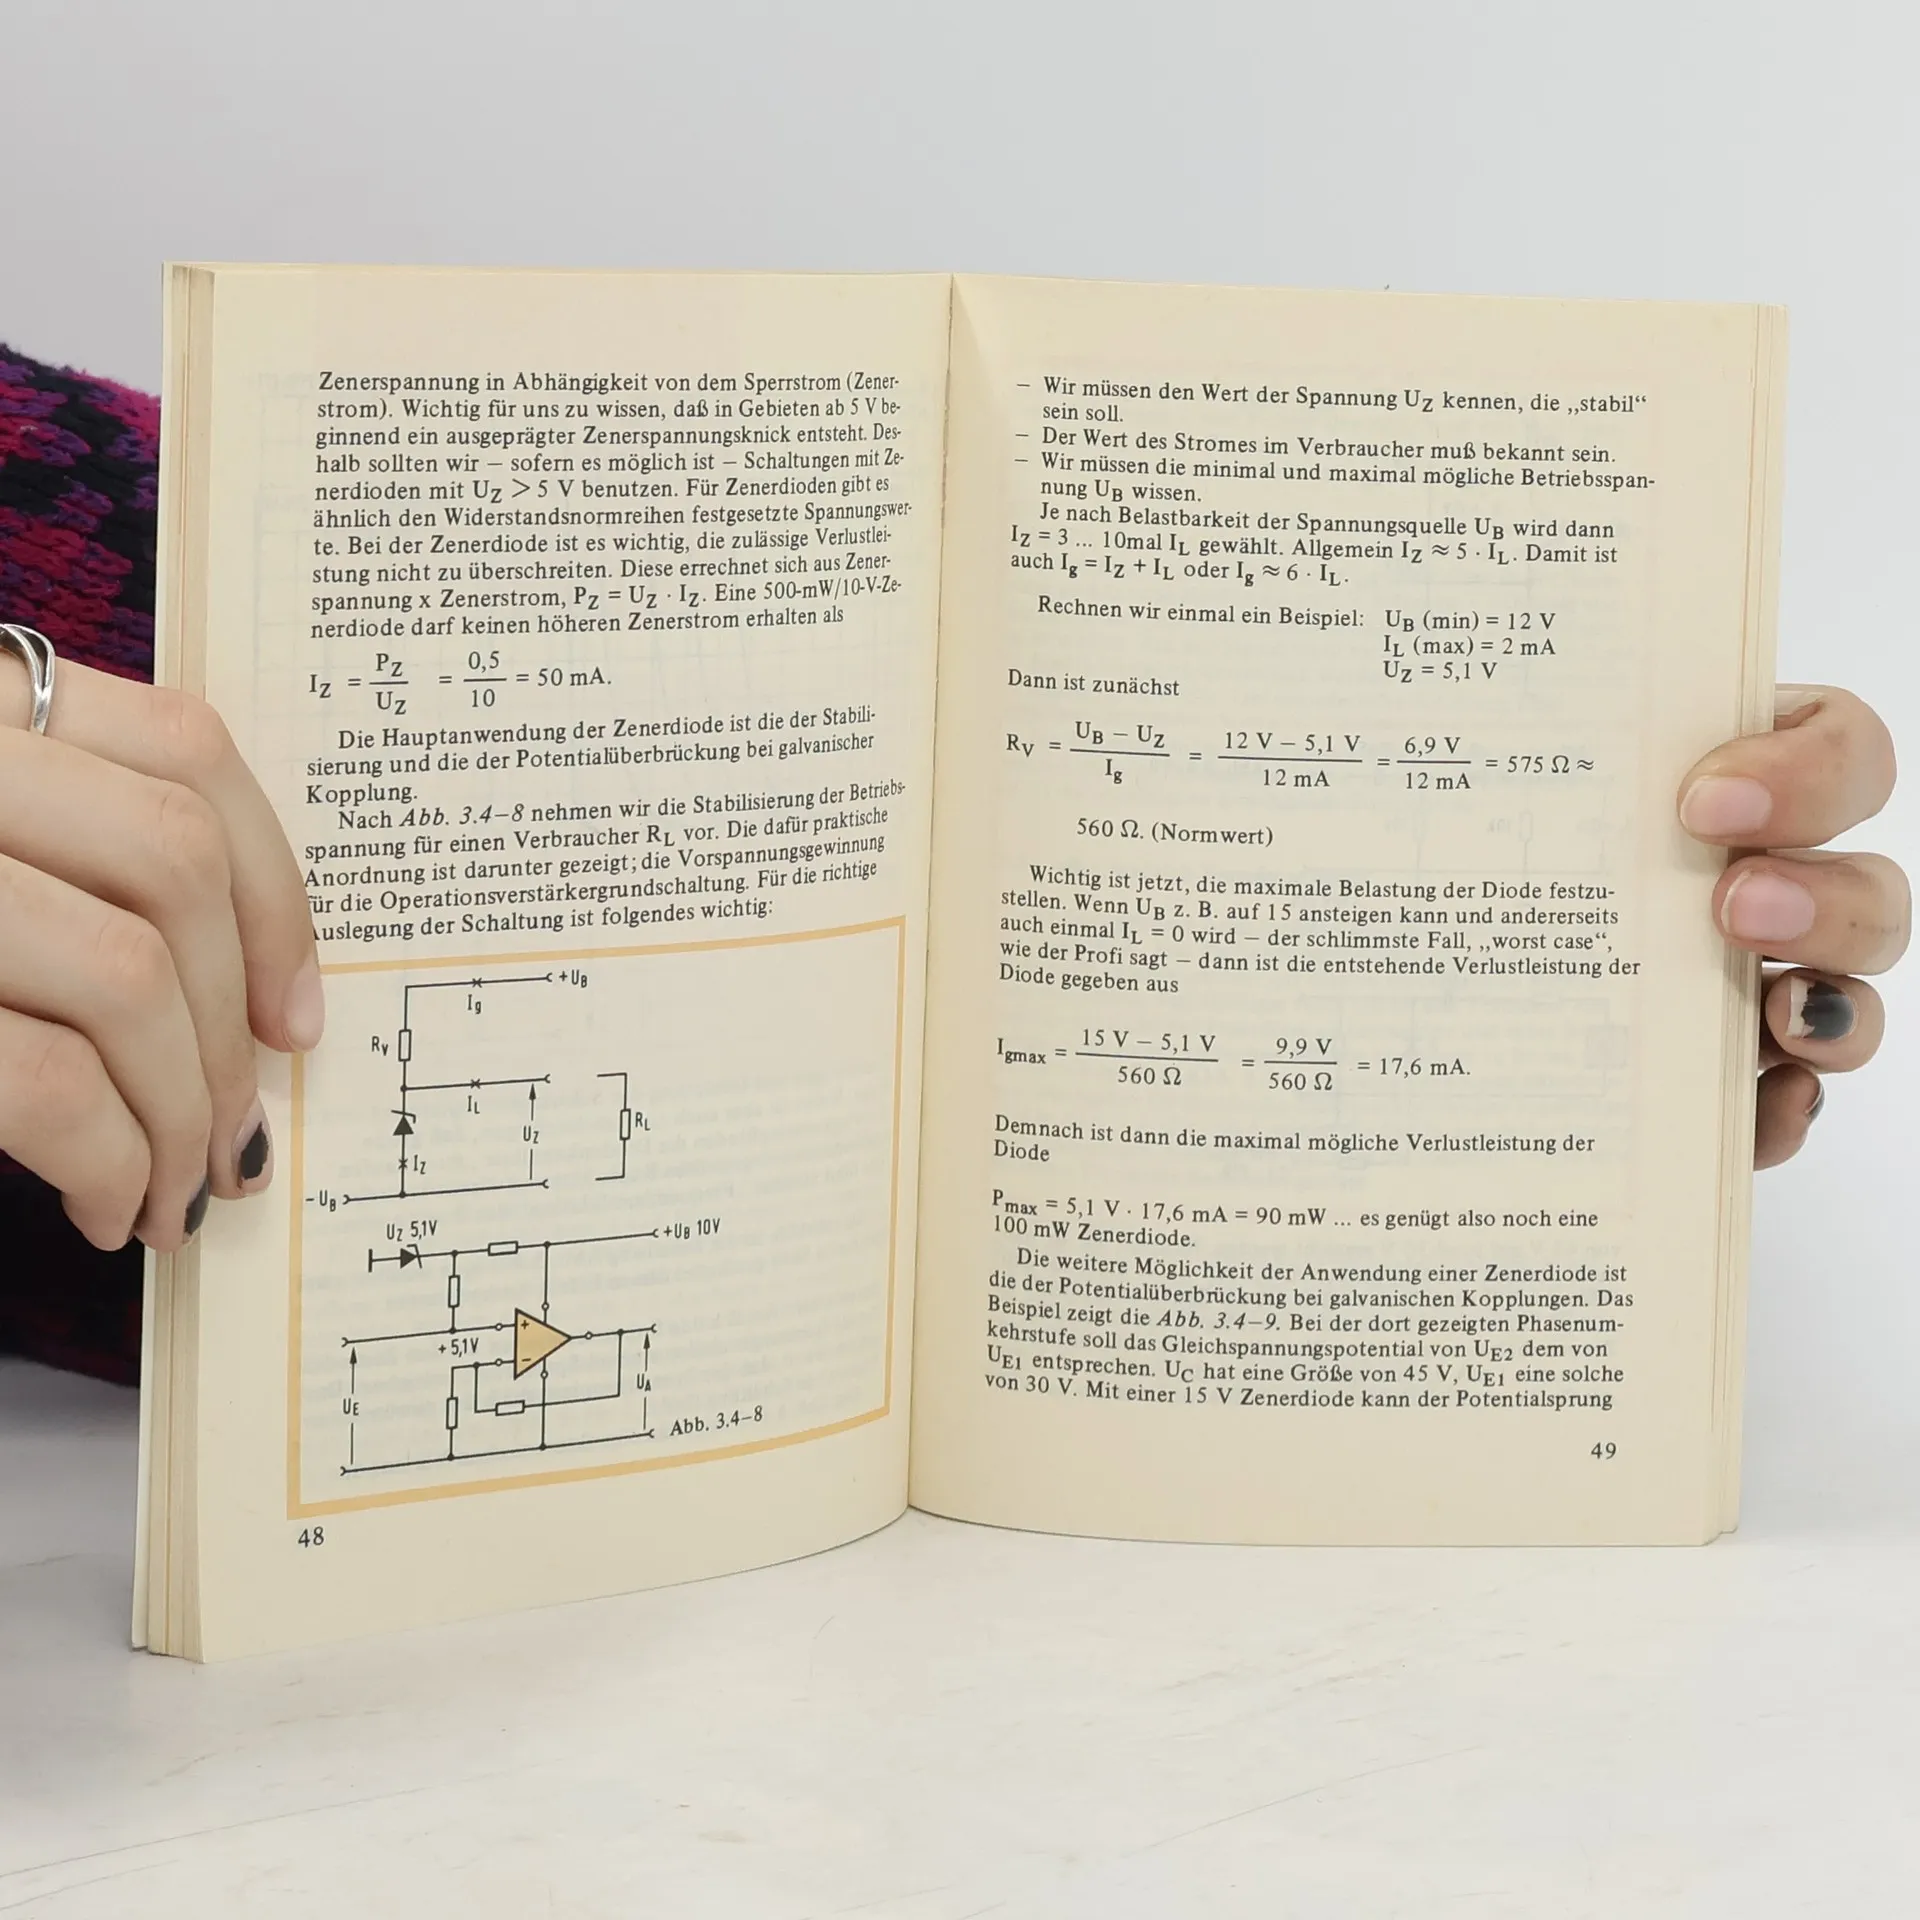 Zenerspannung in Abhängigkeit von dem Sperrstrom (Zener-
strom). Wichtig für uns zu wissen, daß in Gebieten ab 5 V be-
ginnend ein ausgeprägter Zenerspannungsknick entsteht. Des-
halb sollten wir – sofern es möglich ist – Schaltungen mit Ze-
nerdioden mit UZ > 5 V benutzen. Für Zenerdioden gibt es
ähnlich den Widerstandsnormreihen festgesetzte Spannungswer-
te. Bei der Zenerdiode ist es wichtig, die zulässige Verlustlei-
stung nicht zu überschreiten. Diese errechnet sich aus Zener-
spannung x Zenerstrom, PZ = UZ · IZ. Eine 500-mW/10-V-Ze-
nerdiode darf keinen höheren Zenerstrom erhalten als
IZ = PZ / UZ = 0,5 / 10 = 50 mA.
Die Hauptanwendung der Zenerdiode ist die der Stabili-
sierung und die der Potentialüberbrückung bei galvanischer
Kopplung.
Nach Abb. 3.4–8 nehmen wir die Stabilisierung der Betriebs-
spannung für einen Verbraucher RL vor. Die dafür praktische
Anordnung ist darunter gezeigt; die Vorspannungsgewinnung
für die Operationsverstärkergrundschaltung. Für die richtige
Auslegung der Schaltung ist folgendes wichtig:
+UB
Ig
RV
IL
UZ
RL
IZ
-UB
UZ 5,1V
+UB 10V
+
+5,1V
-
UE
UA
Abb. 3.4–8
48
– Wir müssen den Wert der Spannung UZ kennen, die „stabil“
sein soll.
– Der Wert des Stromes im Verbraucher muß bekannt sein.
– Wir müssen die minimal und maximal mögliche Betriebsspan-
nung UB wissen.
Je nach Belastbarkeit der Spannungsquelle UB wird dann
IZ = 3 ... 10mal IL gewählt. Allgemein IZ ≈ 5 · IL. Damit ist
auch Ig = IZ + IL oder Ig ≈ 6 · IL.
Rechnen wir einmal ein Beispiel: UB (min) = 12 V
IL (max) = 2 mA
UZ = 5,1 V
Dann ist zunächst
RV = UB – UZ / Ig = 12 V – 5,1 V / 12 mA = 6,9 V / 12 mA = 575 Ω ≈
560 Ω. (Normwert)
Wichtig ist jetzt, die maximale Belastung der Diode festzu-
stellen. Wenn UB z. B. auf 15 ansteigen kann und andererseits
auch einmal IL = 0 wird – der schlimmste Fall, „worst case“,
wie der Profi sagt – dann ist die entstehende Verlustleistung der
Diode gegeben aus
Igmax = 15 V – 5,1 V / 560 Ω = 9,9 V / 560 Ω = 17,6 mA.
Demnach ist dann die maximal mögliche Verlustleistung der
Diode
Pmax = 5,1 V · 17,6 mA = 90 mW ... es genügt also noch eine
100 mW Zenerdiode.
Die weitere Möglichkeit der Anwendung einer Zenerdiode ist
die der Potentialüberbrückung bei galvanischen Kopplungen. Das
Beispiel zeigt die Abb. 3.4–9. Bei der dort gezeigten Phasenum-
kehrstufe soll das Gleichspannungspotential von UE2 dem von
UE1 entsprechen. UC hat eine Größe von 45 V, UE1 eine solche
von 30 V. Mit einer 15 V Zenerdiode kann der Potentialsprung
49